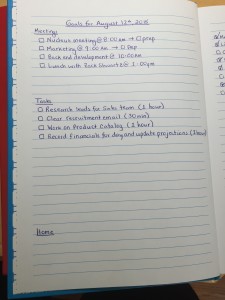 Goals for August 12th 2015
Meetings
□ Nucleus meeting @ 8:00 am → □ prep
□ Marketing @ 9:00 am → □ prep
□ Back end development @ 10:00am
□ Lunch with Zach Stewart @ 1:00pm
Tasks
□ Research leads for Sales team (1 hour)
□ Clear recruitment email (30 min)
□ Work on Product Catalog (1 hour)
□ Record Financials for day and update projections
Home